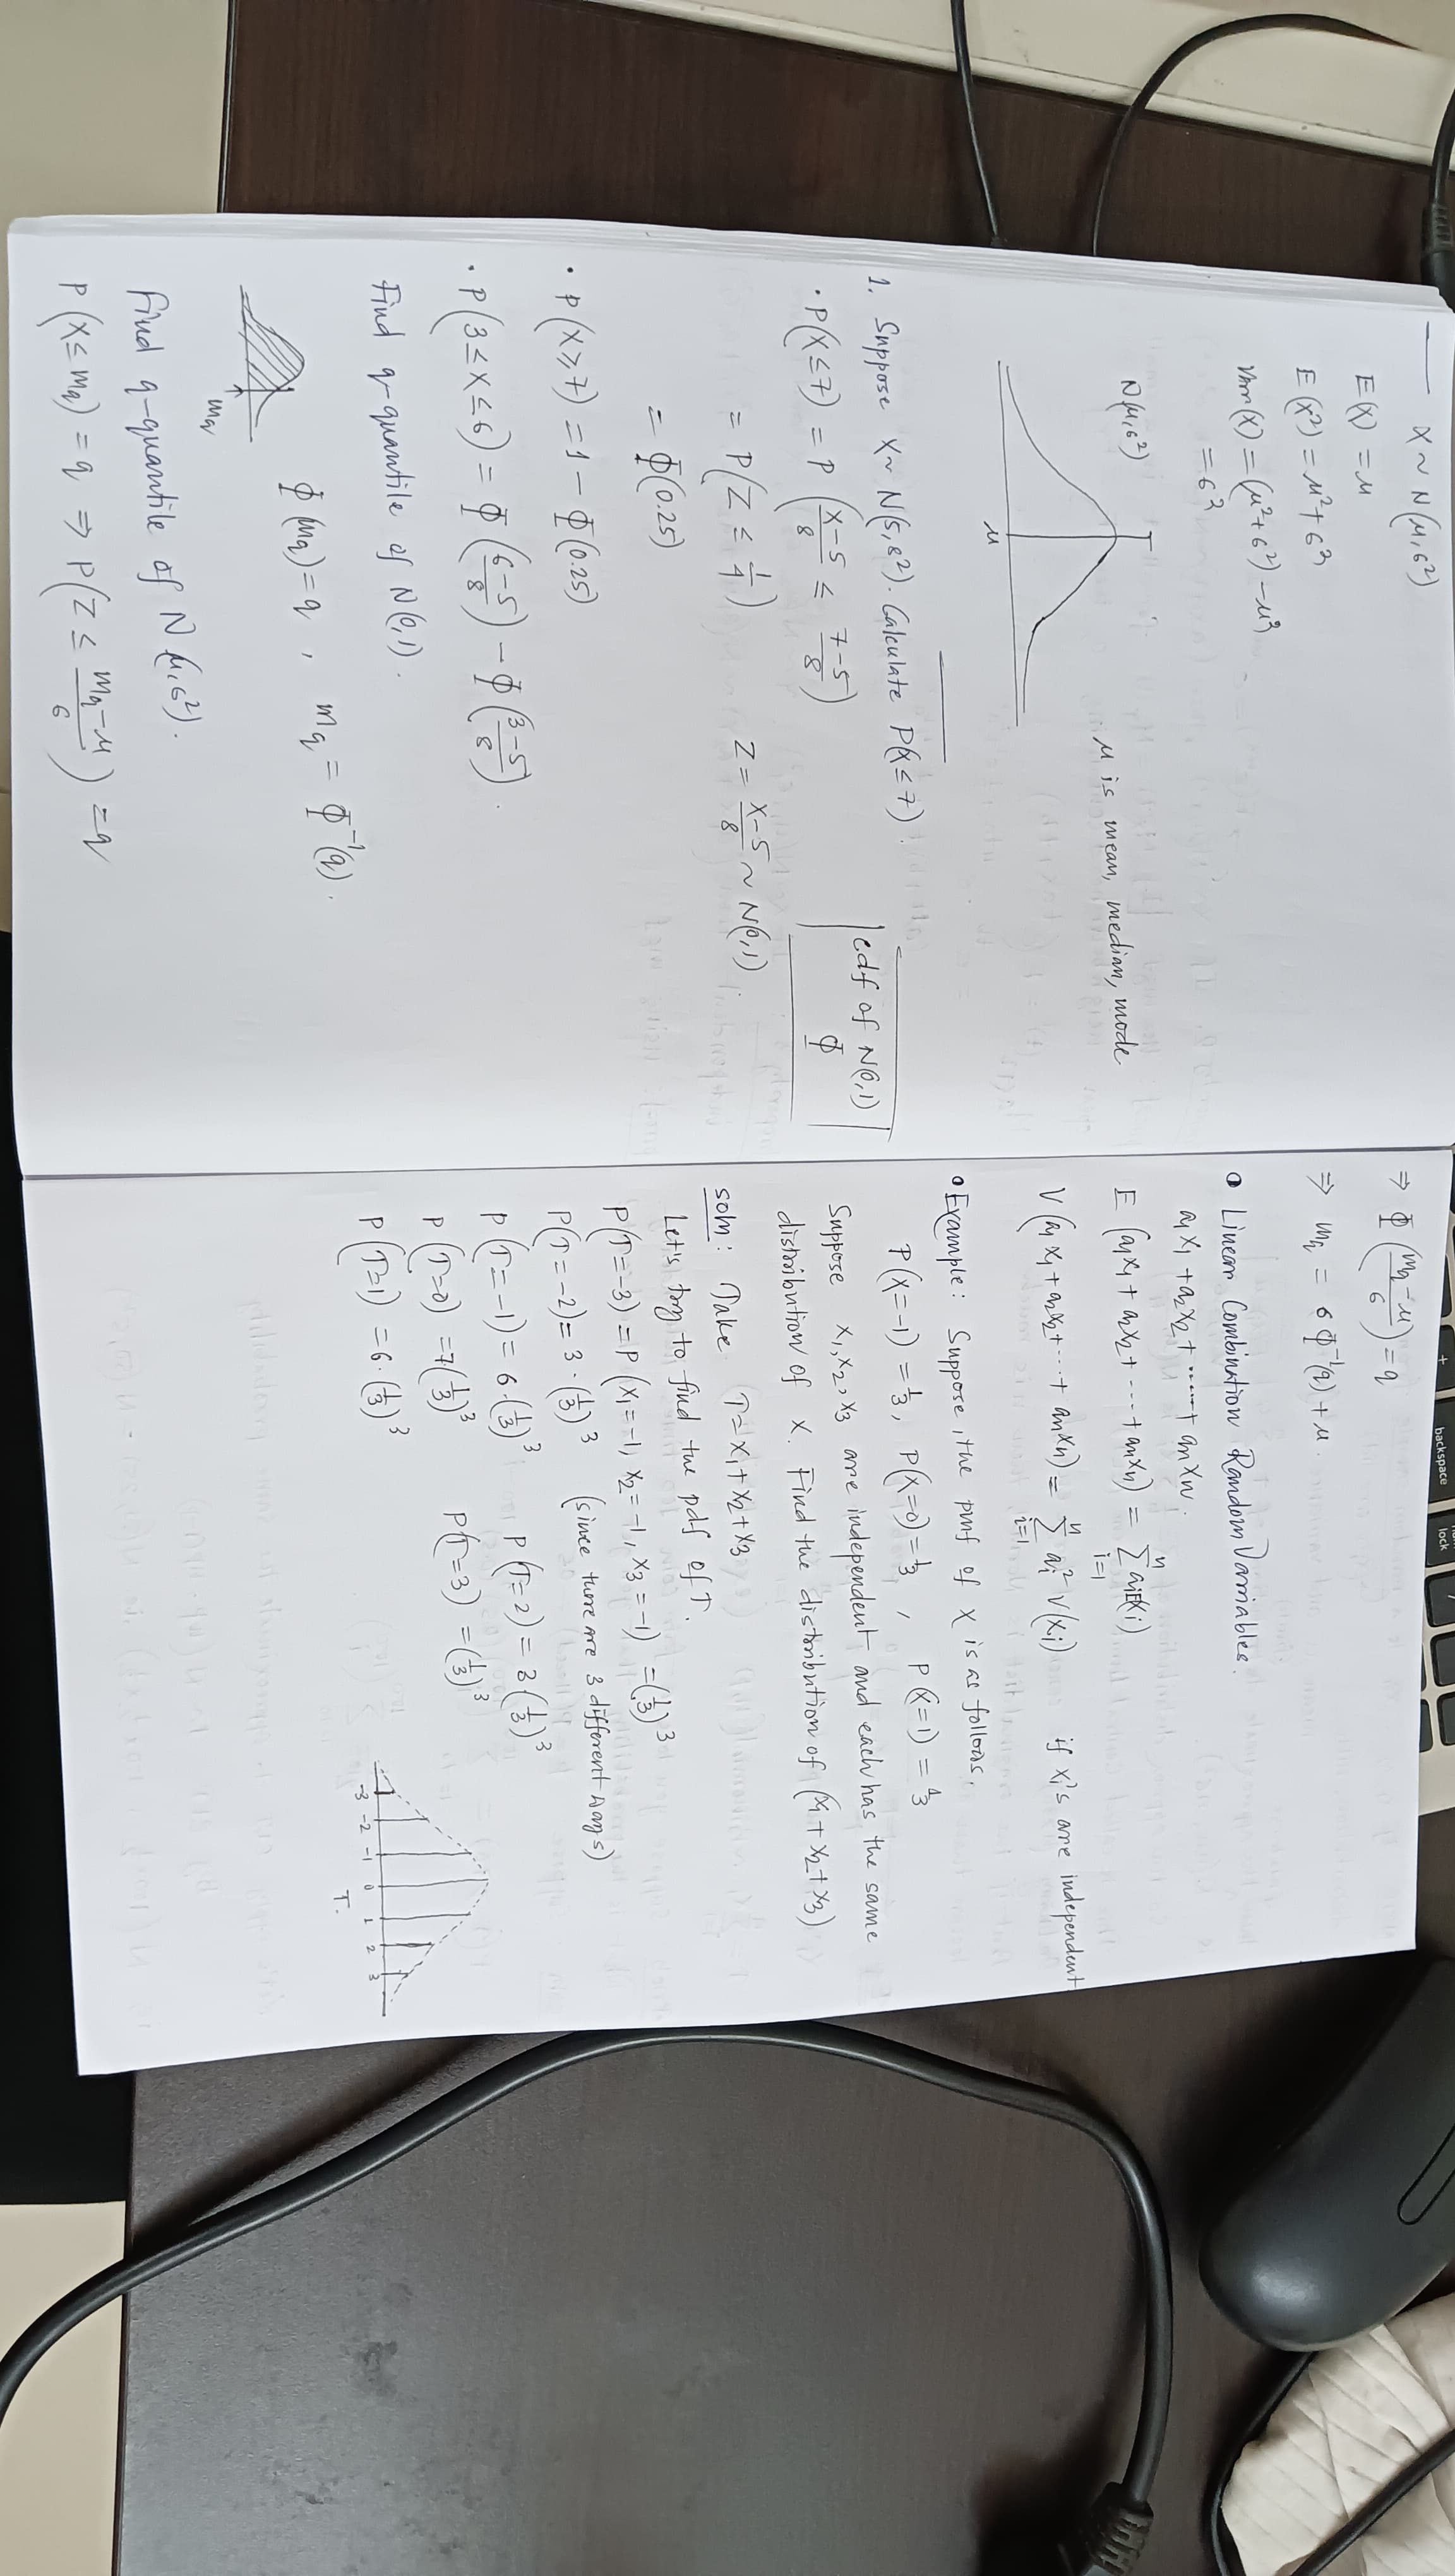 X ~ N(μ, σ²)
E(X) = μ
E(X²) = μ² + σ²
Var(X) = (μ² + σ²) - μ²
= σ²
N(μ, σ²)
μ is mean, median, mode
μ
1. Suppose X ~ N(5, 8²). Calculate P(X ≤ 7).
• P(X ≤ 7) = P((X-5)/8 ≤ (7-5)/8)
cdf of N(0,1)
Φ
= P(Z ≤ 1/4)   Z = (X-5)/8 ~ N(0,1).
= Φ(0.25)
• P(X ≥ 7) = 1 - Φ(0.25)
• P(3 ≤ X ≤ 6) = Φ((6-5)/8) - Φ((3-5)/8).
Find q-quantile of N(0,1).
Φ(mq) = q , mq = Φ⁻¹(q).
mq
Find q-quantile of N(μ, σ²).
P(X ≤ mq) = q ⇒ P(Z ≤ (mq-μ)/σ) = q
⇒ Φ((mq-μ)/σ) = q
⇒ mq = σ Φ⁻¹(q) + μ.
• Linear Combination Random Variables.
a₁X₁ + a₂X₂ + ...... + anXn.
E(a₁X₁ + a₂X₂ + ---- + anXn) = Σⁿᵢ₌₁ aᵢE(Xᵢ)
V(a₁X₁ + a₂X₂ + ---- + anXn) = Σⁿᵢ₌₁ aᵢ² V(Xᵢ) if Xᵢ's are independent
• Example: Suppose, the pmf of X is as follows,
P(X=-1) = 1/3, P(X=0) = 1/3, P(X=1) = 1/3
Suppose X₁, X₂, X₃ are independent and each has the same
distribution of X. Find the distribution of (X₁ + X₂ + X₃)
soln: Take T = X₁ + X₂ + X₃
Let's try to find the pdf of T.
P(T=-3) = P(X₁=-1, X₂=-1, X₃=-1) = (1/3)³
P(T=-2) = 3·(1/3)³ (since there are 3 different ways)
P(T=-1) = 6·(1/3)³   P(T=2) = 3(1/3)³
P(T=0) = 7(1/3)³   P(T=3) = (1/3)³
P(T=1) = 6·(1/3)³
-3 -2 -1 0 1 2 3
T.
backspace
lock
+
7